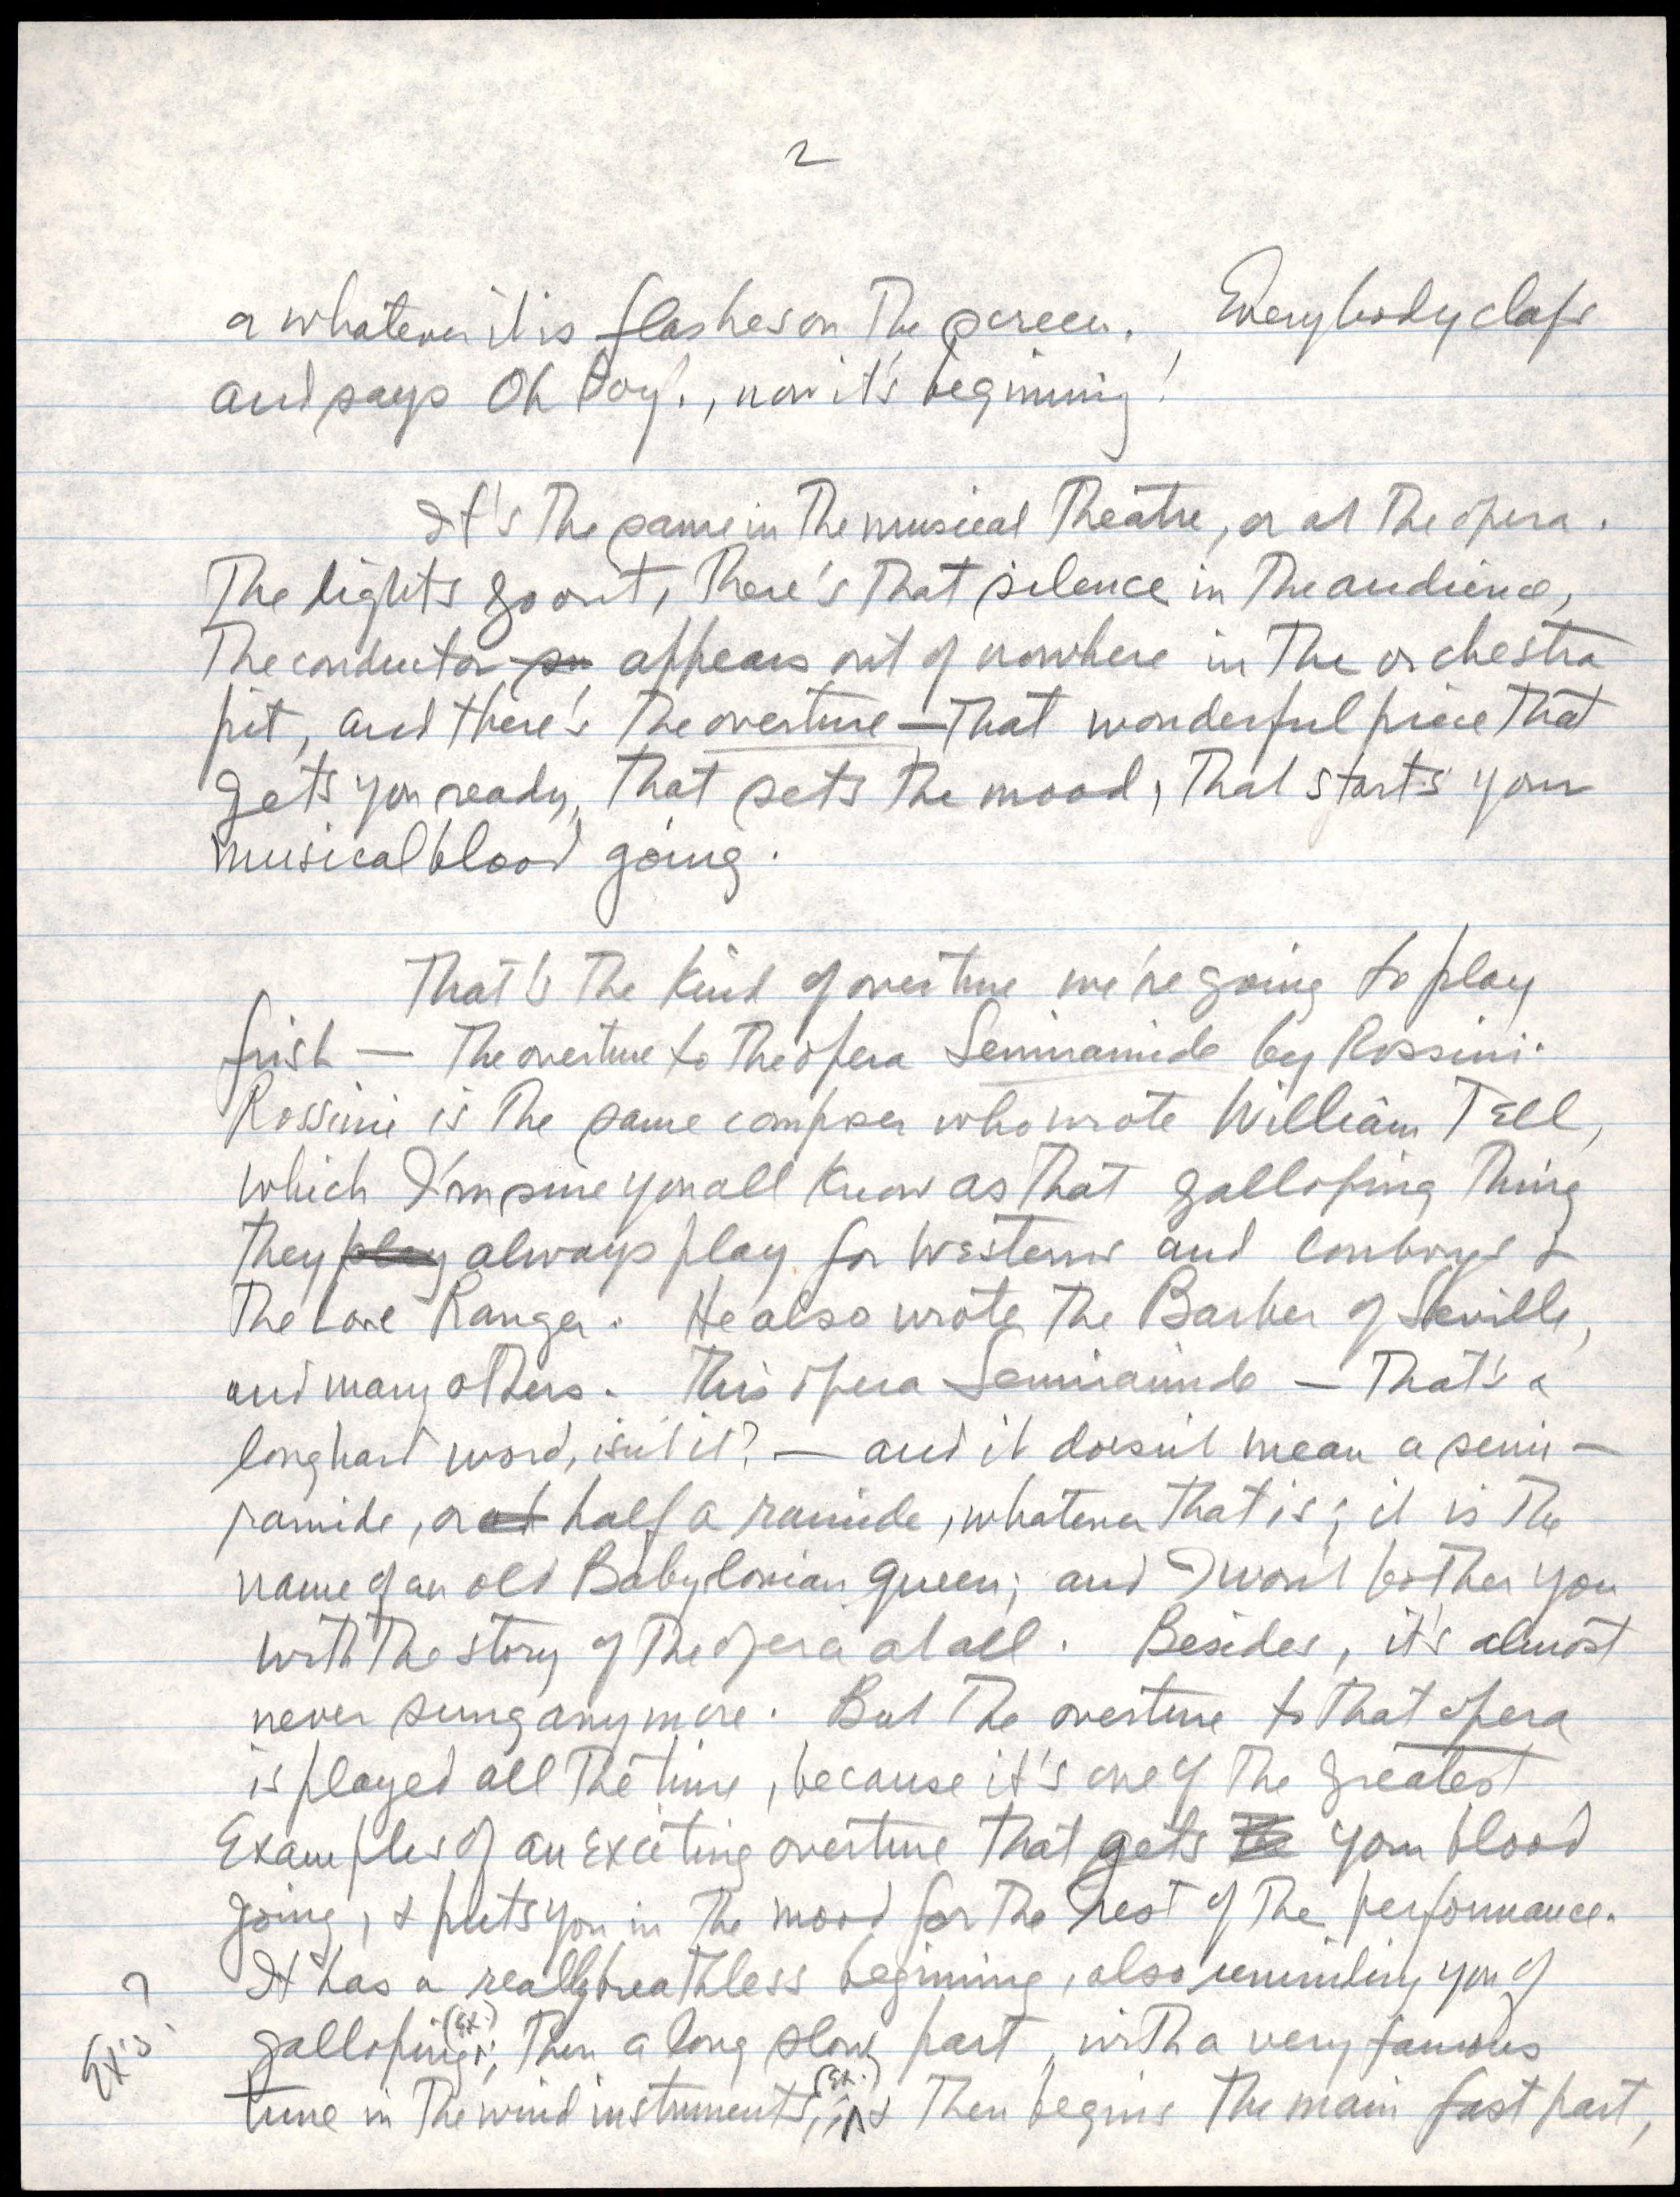 2
or whatever it is flashes on the screen. Everybody claps
and says Oh Boy!, now it's beginning!
It's the same in the musical theatre, or at the opera.
The lights go out, there's that silence in the audience,
the conductor su appears out of nowhere in the orchestra
pit, and there's the overture — that wonderful piece that
gets you ready, that sets the mood, that starts your
musical blood going.
That's the kind of overture we're going to play
first — the overture to the opera Semiramide by Rossini.
Rossini is the same composer who wrote William Tell,
which I'm sure you all know as that galloping thing
they play always play for Westerns and cowboys &
the Lone Ranger. He also wrote the Barber of Seville,
and many others. This opera Semiramide — that's a
long hard word, isn't it? — and it doesn't mean a semi-
ramide, or half a ramide, whatever that is; it is the
name of an old Babylonian queen; and I won't bother you
with the story of the opera at all. Besides, it's almost
never sung anymore. But the overture to that opera
is played all the time, because it's one of the greatest
Examples of an Exciting overture that gets the your blood
going, & puts you in the mood for the rest of the performance.
It has a really breathless beginning, also reminding you of
galloping (Ex.); then a long slow part, with a very famous
tune in the wind instruments, (Ex.) & then begins the main fast part,
Ex's?